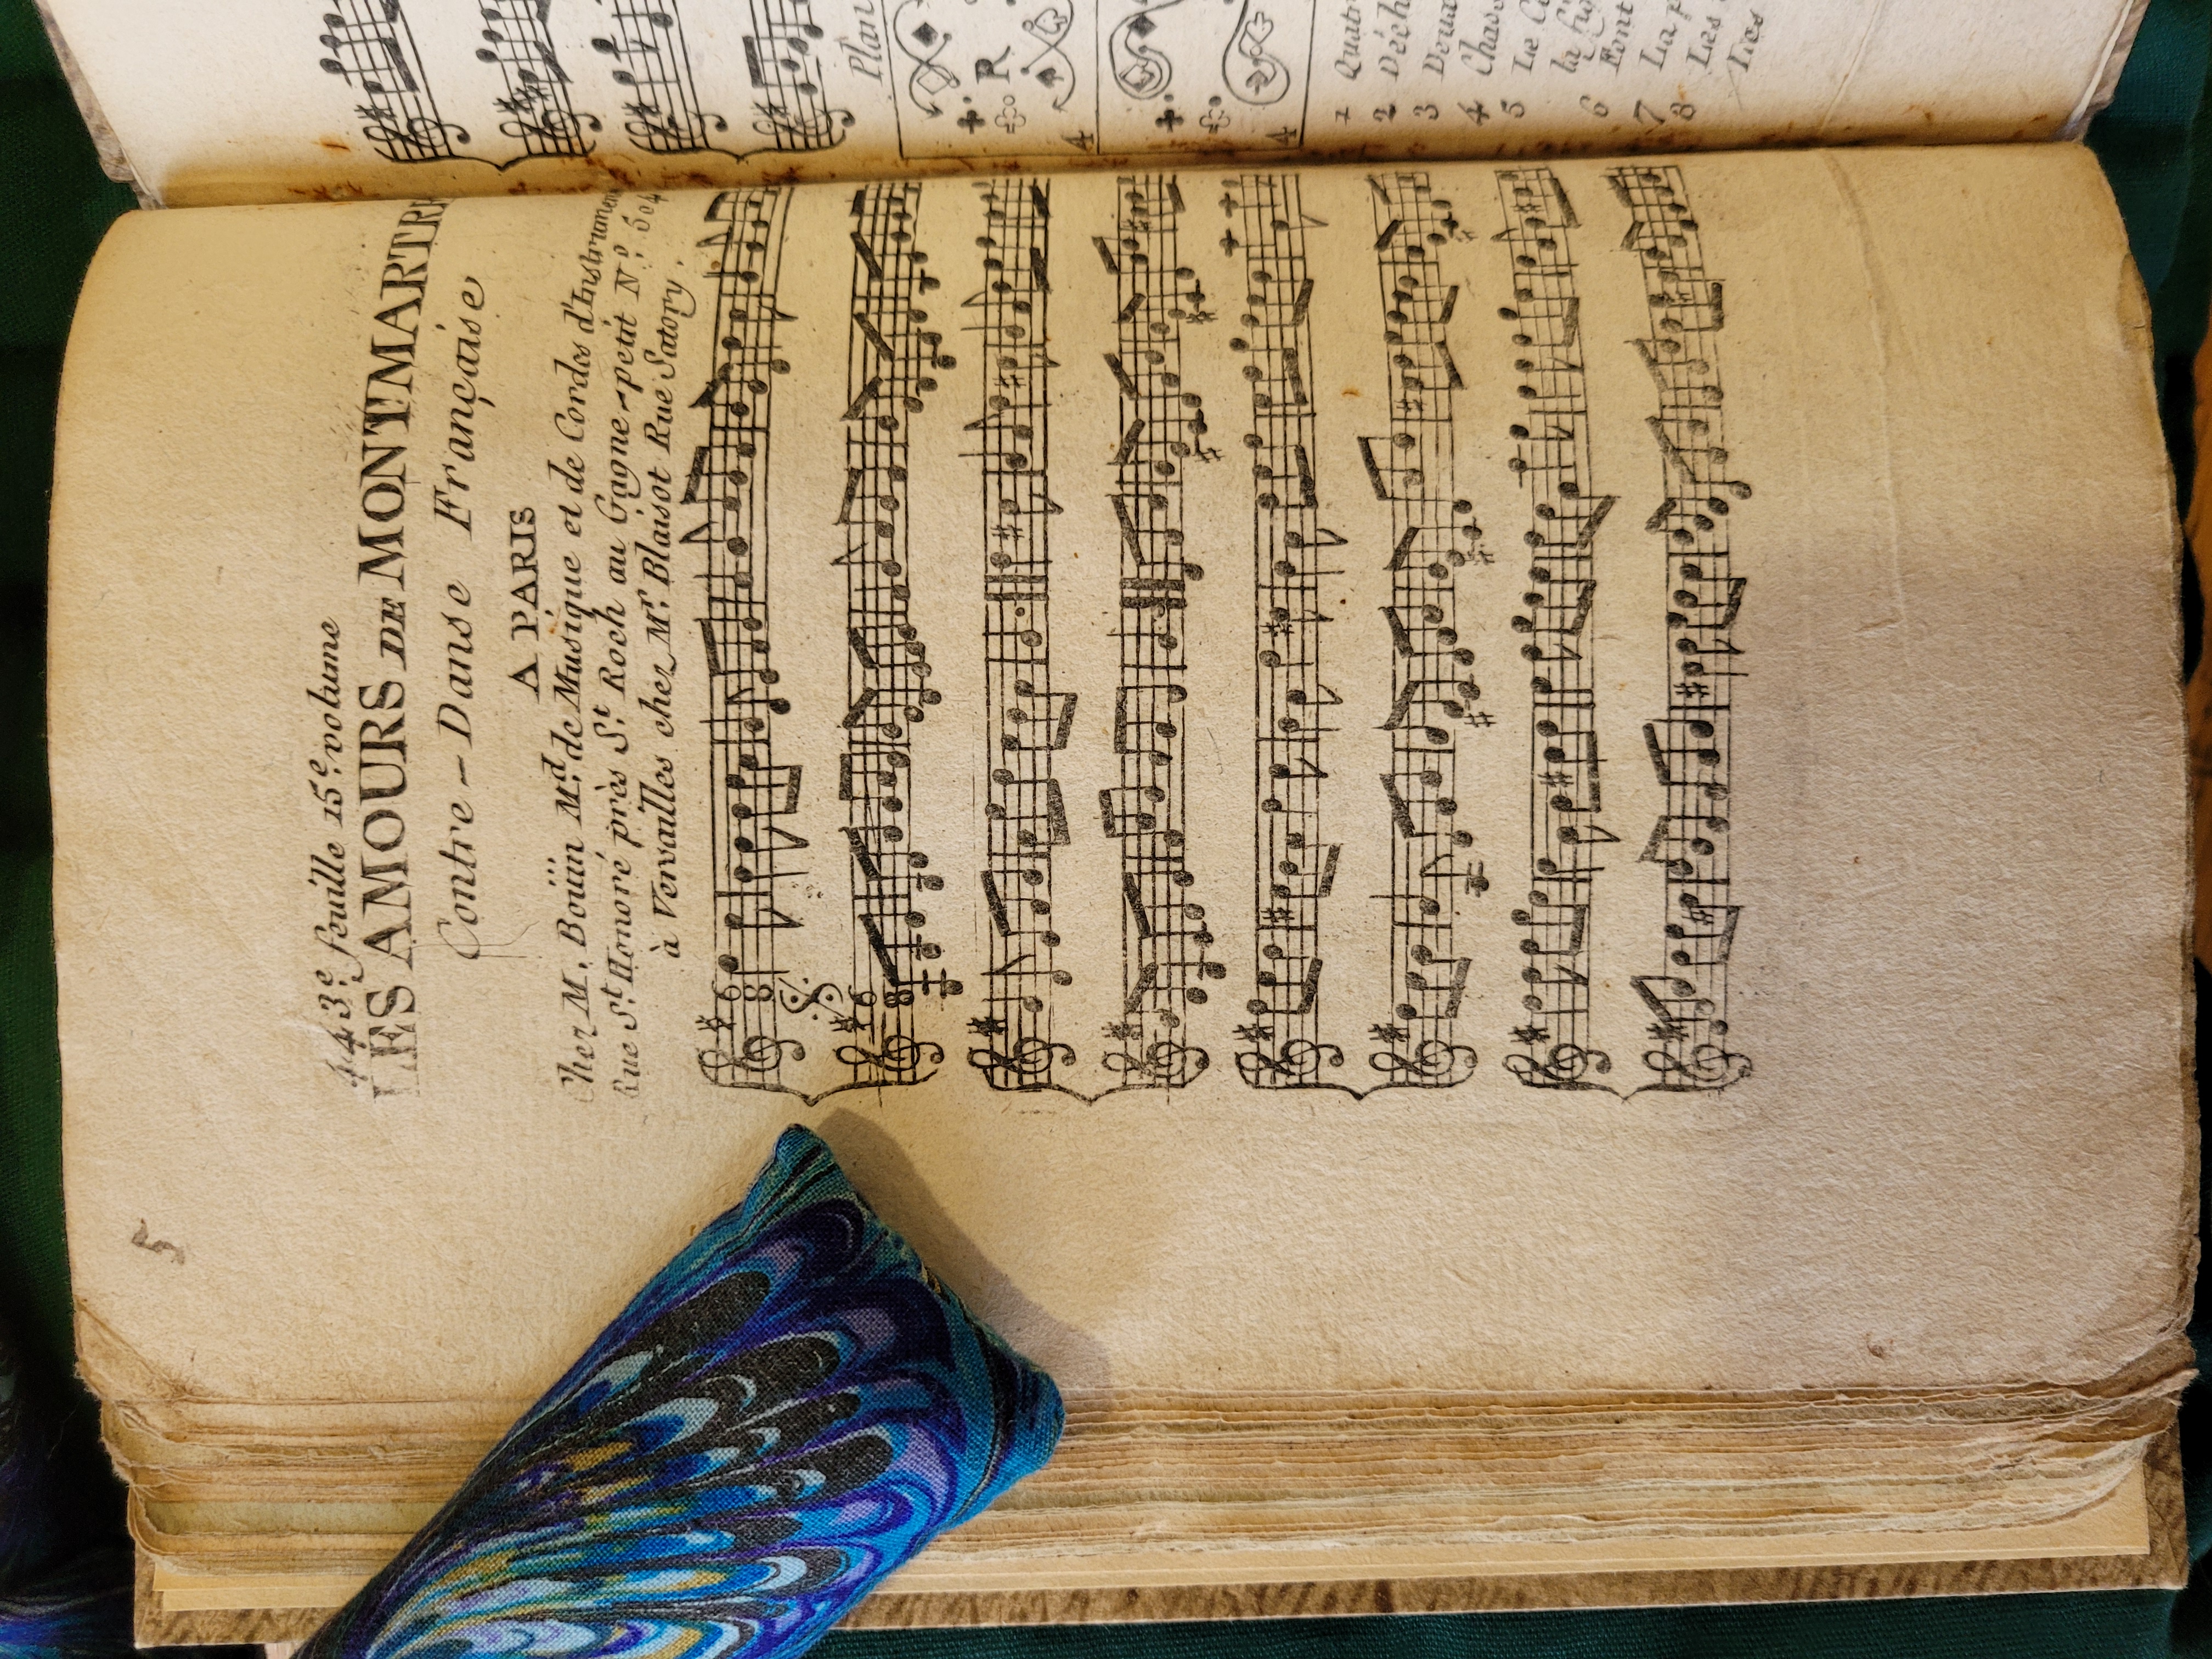 5
443.e feuille 15.e volume
LES AMOURS DE MONTMARTRE
Contre-Danse Française
A PARIS
Chez M. Boüin M.d de Musique et de Cordes d'Instrumens
Rue S.t Honoré près S.t Roch au Gagne-petit N.o 504
à Versailles chez M.r Blaisot Rue Satory.
6
8
6
8
Plan
R
4
4
1 Quatr
2
3
4 Chass
5 Le C
la fig
6 Font
7 La p
8 Les
Les